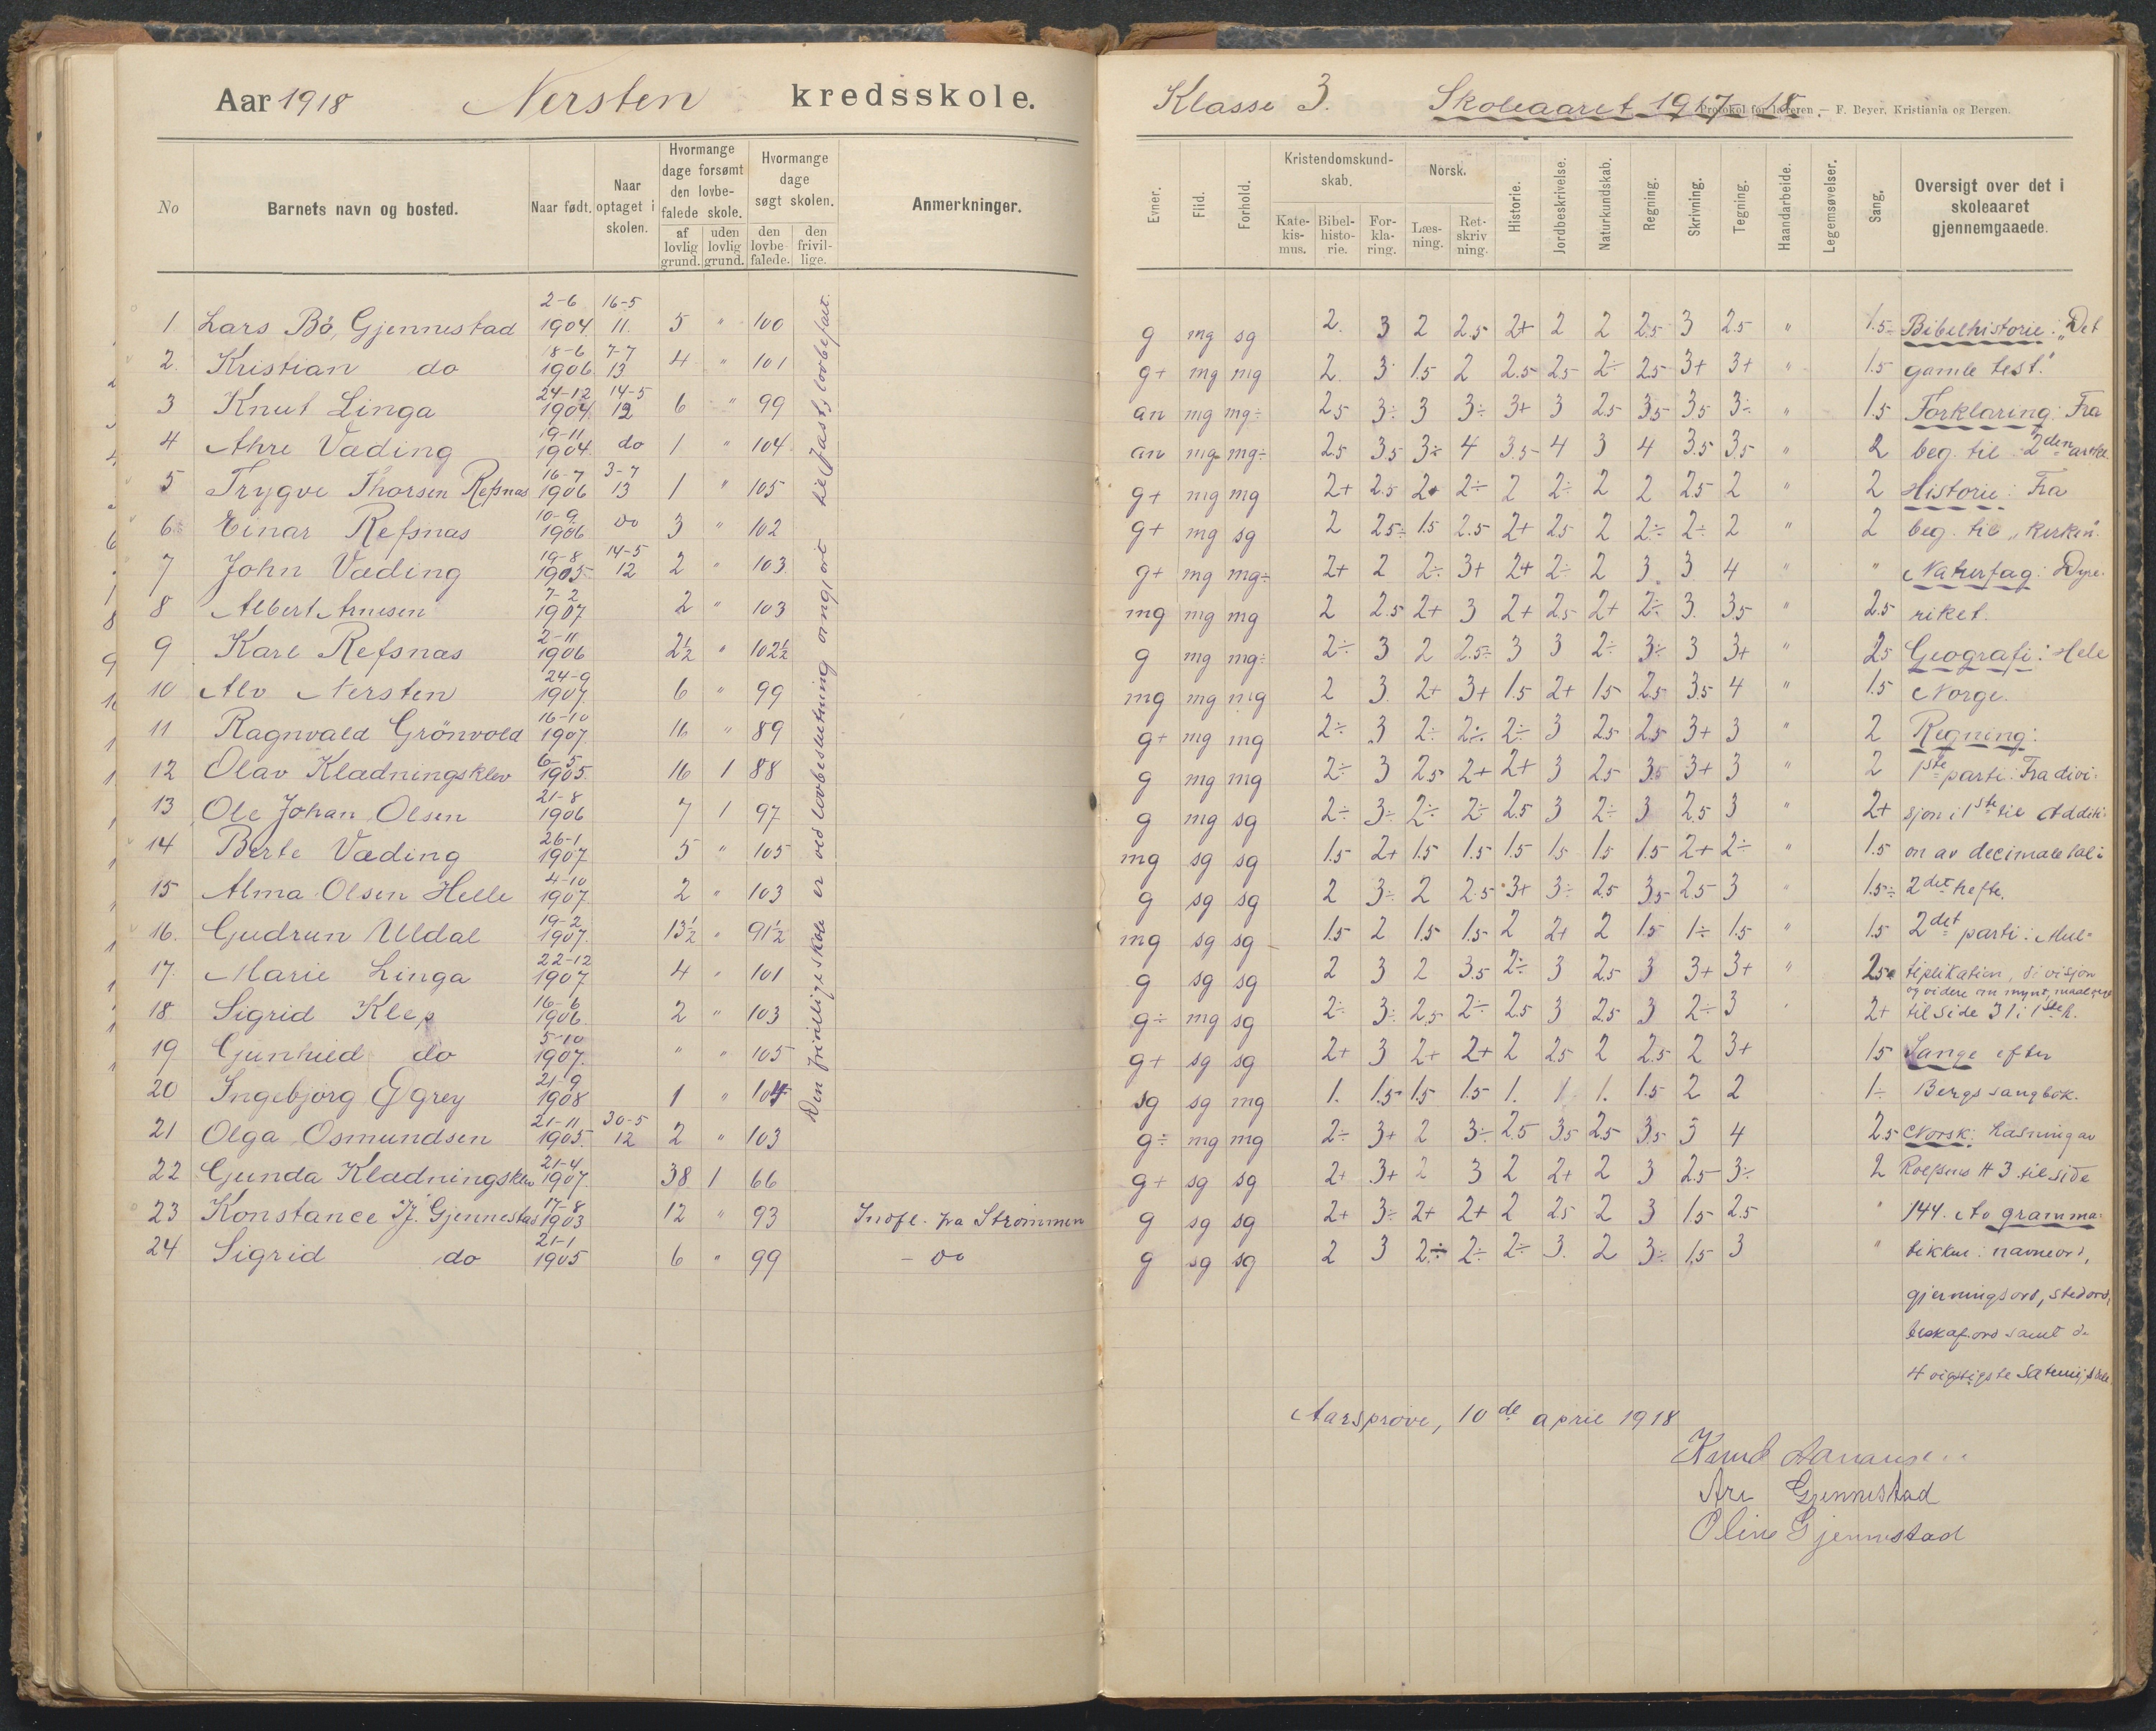 Aar 1918 Nersten kredsskole.
No
Barnets navn og bosted.
Naar født.
Naar optaget i skolen.
Hvormange dage forsømt den lovbefalede skole.
af lovlig grund.
uden lovlig grund.
Hvormange dage søgt skolen.
den lovbefalede.
den frivillige.
Anmerkninger.
1 Lars Bö, Gjennestad 2-6 1904 16-5 11. 5 " 100
2. Kristian do 18-6 1906 7-7 13 4 " 101
3 Knut Linga 24-12 1904 14-5 12 6 " 99
4 Ahre Væding 19-11 1904 do 1 " 104
5 Trygve Thorsen Refsnæs 16-7 1906 3-7 13 1 " 105
6 Einar Refsnæs 10-9 1906 do 3 " 102
7 John Væding 19-8 1905 14-5 12 2 " 103
8 Albert Arnesen 7-2 1907 2 " 103
9 Karl Refsnæs 2-11 1906 2½ " 102½
10 Alv Nersten 24-9 1907. 6 " 99
11 Ragnvald Grönvold 16-10 1907 16 " 89
12 Olav Klædningsklev 6-5 1905 16 1 88
13 Ole Johan Olsen 21-8 1906 7 1 97
14 Berte Væding 26-1 1907 5 " 105
15 Alma Olsen Helle 4-10 1907 2 " 103
16. Gudrun Uldal 19-2 1907. 13½ " 91½
17. Marie Linga 22-12 1907 4 " 101
18 Sigrid Klep 16-6 1906 2 " 103
19 Gunhild do 5-10 1907. " " 105
20 Ingebjørg Egrey 21-9 1908 1 " 104
21 Olga Osmundsen 21-11 1905 30-5 12 2 " 103
22 Gunda Klædningsklev 21-4 1907 38 1 66
23 Konstance Gjennestad 17-8 1903 12 " 93 Indfl. fra Strømmen
24 Sigrid do 21-1 1905 6 " 99 - do
Den frivillige skole er ved lovbeslutning omgjort til fast, lovbefalt.
Klasse 3. Skoleaaret 1917-18.
Protokol for læreren — F. Beyer. Kristiania og Bergen.
Evner.
Flid.
Forhold.
Kristendomskundskab.
Katekismus.
Bibelhistorie.
Forklaring.
Norsk.
Læsning.
Retskrivning.
Historie.
Jordbeskrivelse.
Naturkundskab.
Regning.
Skrivning.
Tegning.
Haandarbeide.
Legemsøvelser.
Sang.
Oversigt over det i skoleaaret gjennemgaaede.
g mg sg 2. 3 2 2.5 2+ 2 2 2.5 3 2.5 " 1.5÷ Bibelhistorie: "Det
g+ mg mg 2. 3 1.5 2 2.5 2.5 2÷ 2.5 3+ 3+ " 1.5 gamle test."
an mg mg÷ 2.5 3÷ 3 3÷ 3+ 3 2.5 3.5 3.5 3÷ " 1.5 Forklaring: Fra
an mg mg÷ 2.5 3.5 3÷ 4 3.5 4 3 4 3.5 3.5 " 2 beg. til 2den artikel
g+ mg mg 2+ 2.5 2+ 2÷ 2 2÷ 2 2 2.5 2 " 2 Historie: Fra
g+ mg sg 2 2.5÷ 1.5 2.5 2+ 2.5 2 2÷ 2÷ 2 " 2 beg. til "kirken".
g+ mg mg÷ 2+ 2 2÷ 3+ 2+ 2÷ 2 3 3 4 " " Naturfag: Dyre-
mg mg mg 2 2.5 2+ 3 2+ 2.5 2+ 2÷ 3. 3.5 " 2.5 riket.
g mg mg÷ 2÷ 3 2 2.5÷ 3 3 2÷ 3÷ 3 3+ " 2.5 Geografi: Hele
mg mg mg 2 3. 2+ 3+ 1.5 2+ 1.5 2.5 3.5 4 " 1.5 Norge.
g+ mg mg 2÷ 3 2÷ 2÷ 2÷ 3 2.5 2.5 3+ 3 " 2 Regning:
g mg mg 2÷ 3 2.5 2+ 2+ 3 2.5 3.5 3+ 3 " 2 1ste parti: Fra divi-
g mg sg 2÷ 3÷ 2÷ 2÷ 2.5 3 2÷ 3 2.5 3 " 2+ sjon i 1ste til Additi-
mg sg sg 1.5 2+ 1.5 1.5 1.5 1.5 1.5 1.5 2+ 2÷ " 1.5 on av decimaltal i
g sg sg 2 3÷ 2 2.5 3+ 3÷ 2.5 3.5 2.5 3 " 1.5÷ 2det hefte.
mg sg sg 1.5 2 1.5 1.5 2 2+ 2 1.5 1÷ 1.5 " 1.5 2det parti: Mul-
g sg sg 2 3 2 3.5 2÷ 3 2.5 3 3+ 3+ " 2.5 tiplikation, divisjon
og videre om mynt, maal og
g÷ mg sg 2÷ 3÷ 2.5 2÷ 2.5 3 2.5 3 2÷ 3 " 2+ til side 31 i 1ste h.
g+ sg sg 2+ 3 2+ 2+ 2 2.5 2 2.5 2 3+ 1.5 Sange efter
sg sg mg 1. 1.5 1.5 1.5 1. 1 1. 1.5 2 2 1÷ Bergs sangbok.
g÷ mg mg 2÷ 3+ 2 3÷ 2.5 3.5 2.5 3.5 3 4 2.5 Norsk: Læsning av
g+ sg sg 2+ 3+ 2 3 2 2+ 2 3 2.5 3÷ 2 Rolfsens # 3 til side
g sg sg 2+ 3÷ 2+ 2+ 2 2.5 2 3 1.5 2.5 " 144. Av gramma-
g sg sg 2 3 2÷ 2÷ 2÷ 3. 2 3÷ 1.5 3 " tikken: navneord,
gjerningsord, stedord,
beskaf.ord samt de
4 vigtigste
Aarsprøve, 10de april 1918
Knud
Are Gjennestad
Oline Gjennestad